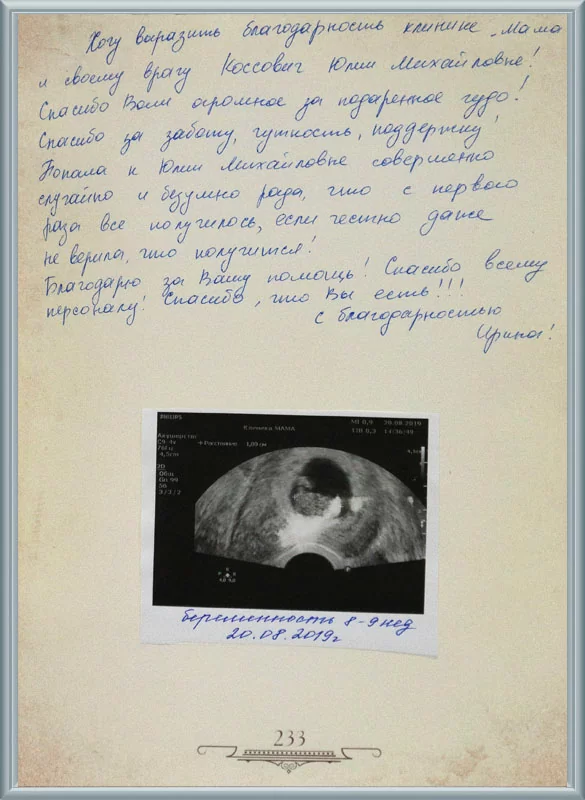 Хочу выразить благодарность клинике Мама
и своему врачу Коссович Юлии Михайловне!
Спасибо Вам огромное за подаренное чудо!
Спасибо за заботу, чуткость, поддержку!
Попала к Юлии Михайловне совершенно
случайно и безумно рада, что с первого
раза все получилось, если честно даже
не верила, что получится!
Благодарю за Вашу помощь! Спасибо всему
персоналу! Спасибо, что Вы есть!!!
С благодарностью
Ирина!
PHILIPS
Клиника МАМА
MI 0,9 20.08.2019
TIB 0,3 14:36:49
Акушерство
C9-4v
78Гц
4,5см
+ Расстояние 1,09 см
2D
Общ
Gn 99
56
3/3/2
беременность 8-9 нед
20.08.2019г
233